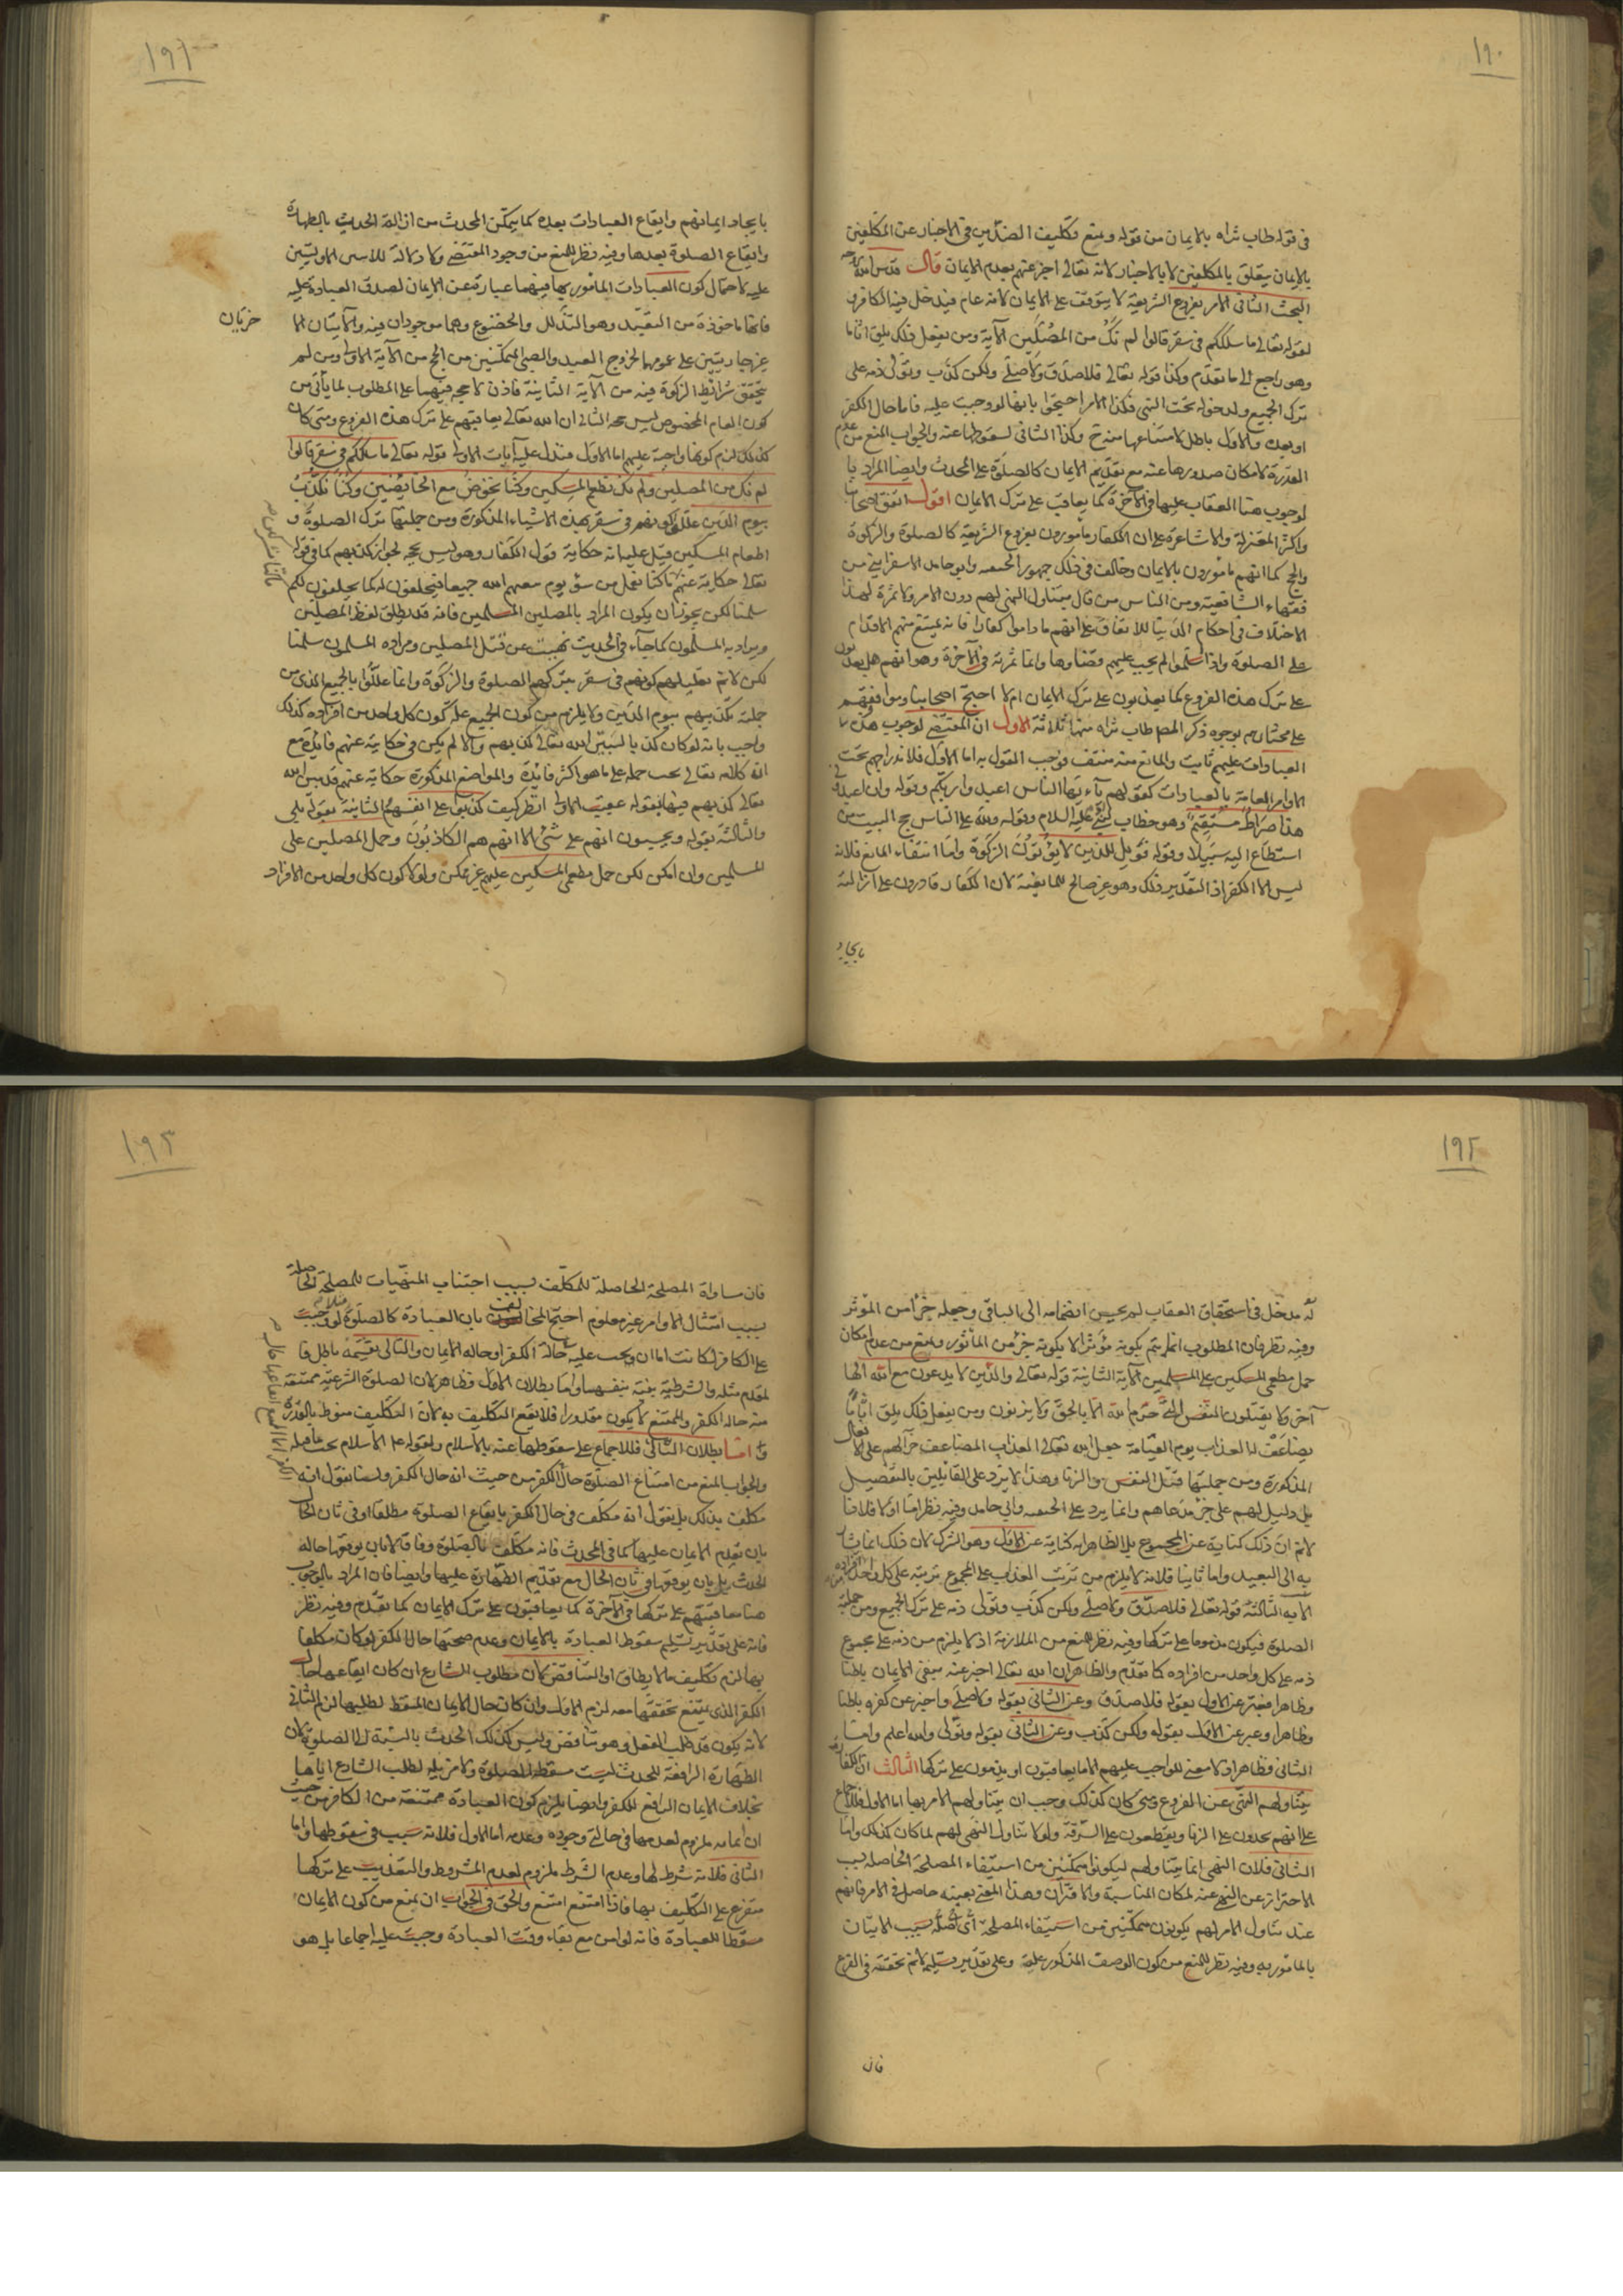 ١٩٠
فى قوله طاب ثراه بالايمان من قوله ويمنع تكليف الضدين فى الاخبار عن المكلفين
بالايمان يتعلق بالمكلفين لا بالاخبار لانه تعالى اخبر عنهم بعدم الايمان قال قدس الله روحه
البحث الثانى الامر بفروع الشريعة لا يتوقف على الايمان لانه عام فيدخل فيه الكافر و
لقوله تعالى ما سلككم فى سقر قالوا لم نك من المصلين الآية ومن يفعل ذلك يلق اثاما
وهو راجع الى ما تقدم وكذا قوله تعالى فلا صدق ولا صلى ولكن كذب وتولى ذمه على
ترك الجميع ولدخوله تحت النهى فكذا الامر احتجوا بانها لو وجبت عليه فاما حال الكفر
او بعده والاول باطل لامتناعها منه ح وكذا الثانى لسقوطها عنه والجواب المنع من عدم
القدرة لامكان صدورها عنه مع تقديم الايمان كالصلوة على المحدث وايضا المراد با
لوجوب هنا العقاب عليها فى الآخرة كما يعاقب على ترك الايمان اقول اتفق اصحابنا
واكثر المعتزلة والاشاعرة على ان الكفار مأمورون بفروع الشريعة كالصلوة والزكوة
والحج كما انهم مأمورون بالايمان وخالف فى ذلك جمهور الحنفيه وابو حامد الاسفراينى من
فقهاء الشافعية ومن الناس من قال بتناول النهى لهم دون الامر ولا ثمرة لهذا
الاختلاف فى احكام الدنيا للاتفاق على انهم ما داموا كفارا فانه يمتنع منهم الاقدام
على الصلوة واذا اسلموا لم يجب عليهم قضاوها وانما ثمرته فى الآخرة وهو انهم هل يعذبون
على ترك هذه الفروع كما يعذبون على ترك الايمان ام لا احتج اصحابنا وموافقوهم
على مختارهم بوجوه ذكر المصطاب ثراه منها ثلاثة الاول ان المقتضى لوجوب هذه
العبادات عليهم ثابت والمانع منه منتف فوجب القول به اما الاول فلاندراجهم تحت
الاوامر العامة بالعبادات كقوله يا ايها الناس اعبدوا ربكم وقوله وان اعبدونى
هذا صراط مستقيم وهو خطاب عليه السلام وقوله ولله على الناس حج البيت من
استطاع اليه سبيلا وقوله فويل للذين لا يؤتون الزكوة واما انتفاء المانع فلانه
ليس الا الكفر اذ التقدير ذلك وهو غير صالح للمانعية لان الكفار قادرون على ازالته
بايجاد
١٩١
بايجاد ايمانهم وايقاع العبادات بعده كما يتمكن المحدث من ازالة الحدث بالطهارة
وايقاع الصلوة بعدها وفيه نظر للمنع من وجود المقتضى ولا دلالة للامرين الاولين
عليه لاحتمال كون العبادات المأمور بها فيهما عبارة عن الايمان لصدق العبادة عليه
فانها ماخوذة من التعبد وهو التذلل والخضوع وهما موجودان فيه والآيتان الا
خريان
غير جاريتين على عمومهما لخروج العبيد والصبى المتمكنين من الحج من الآية الاولى ومن لم
يتحقق شرائط الزكوة فيه من الآية الثانية فاذن لا حجه فيهما على المطلوب لما يأتى من
كون العام المخصوص ليس حجه الثانى ان الله تعالى يعاقبهم على ترك هذه الفروع ومتى كان
كذلك لزم كونها واجبة عليهم اما الاول فتدل عليه آيات الاولى قوله تعالى ما سلككم فى سقر قالوا
لم نك من المصلين ولم نك نطعم المسكين وكنا نخوض مع الخائضين وكنا نكذب
بيوم الدين عللوا كونهم فى سقر بهذه الاشياء المذكورة ومن جملتها ترك الصلوة و
اطعام المسكين قيل عليه انه حكاية قول الكفار وهو ليس بحجه لجواز كذبهم كما فى قوله
تعالى حكاية عنهم ما كنا نعمل من سوء يوم يبعثهم الله جميعا فيحلفون له كما يحلفون لكم
سلمنا لكن يجوز ان يكون المراد بالمصلين المسلمين فانه قد يطلق لفظ المصلين
ويراد به المسلمون كما جآء فى الحديث نهيت عن قتل المصلين ومراده المسلمون سلمنا
لكن لا ثم تعليلهم كونهم فى سقر بتركهم الصلوة والزكوة وانما عللوا بالجميع الذى من
جملته تكذيبهم بيوم الدين ولا يلزم من كون الجميع علة كون كل واحد من افراده كذلك
واجيب بانه لو كان كذبا لبين الله تعالى كذبهم والا لم يكن فى حكايته عنهم فائدة مع
ان كلامه تعالى يجب حمله على ما هو اكثر فائدة والمواضع المذكورة حكاية عنهم قد بين الله
تعالى كذبهم فيها بقوله عقيب الاولى انظر كيف كذبوا على انفسهم الثانية بقوله بلى
والثالثة بقوله ويحسبون انهم على شئ الا انهم هم الكاذبون وحمل المصلين على
المسلمين وان امكن لكن حمل مطعمى المسكين عليهم غير ممكن ولولا كون كل واحد من الافراد
١٩٢
له مدخل فى استحقاق العقاب لم يحسن انضمامه الى الباقى وجعله جزأ من المؤثر
وفيه نظر فان المطلوب انما يتم بكونه مؤثرا لا بكونه جزء من المأثور ونمنع من عدم امكان
حمل مطعمى المسكين على المسلمين الآية الثانية قوله تعالى والذين لا يدعون مع الله الها
آخر ولا يقتلون النفس التى حرم الله الا بالحق ولا يزنون ومن يفعل ذلك يلق اثاما
يضاعف له العذاب يوم القيامة جعل الله تعالى العذاب المضاعف جزآلهم على الافعال
المذكورة ومن جملتها قتل النفس والزنا وهذا لا يرد على القائلين بالتفصيل
بل دليل لهم على جزء مدعاهم وانما يرد على الحنفيه وابى حامد وفيه نظر اما اولا فلانا
لا ثم ان ذلك كناية عن المجموع بل الظاهر انه كناية عن الاول وهو الشرك لان ذلك انما يشار
به الى البعيد واما ثانيا فلانه لا يلزم من ترتب العذاب على المجموع ترتبه على كل واحد من افراده
الآيه الثالثة قوله تعالى فلا صدق ولا صلى ولكن كذب وتولى ذمه على ترك الجميع ومن جملته
الصلوة فيكون مذموما على تركها وفيه نظر للمنع من الملازمة اذ لا يلزم من ذمه على مجموع
ذمه على كل واحد من افراده كما تقدم والظاهر ان الله تعالى اخبر عنه بنفى الايمان باطنا
وظاهرا فعبر عن الاول بقوله فلا صدق وعن الثانى بقوله ولا صلى واخبر عن كفره باطنا
وظاهرا وعبر عن الاول بقوله ولكن كذب وعن الثانى بقوله وتولى والله اعلم واما
الثانى فظاهر اذ لا معنى للواجب عليهم الا ما يعاقبون او يذمون على تركها الثالث ان الكفار
يتناولهم النهى عن الفروع ومتى كان كذلك وجب ان يتناولهم الامر بها اما الاول فللاجماع
على انهم يحدون على الزنا ويقطعون على السرقة ولولا تناول النهى لهم لما كان كذلك واما
الثانى فلان النهى انما يتناولهم ليكونوا متمكنين من استيفاء المصلحة الحاصله بسبب
الاحتراز عن المنهى عنه لمكان المناسبة والاقتران وهذا المعنى بعينه حاصل فى الامر فانهم
عند تناول الامر لهم يكونون متمكنين من استيفاء المصلحة الحاصله بسبب الاتيان
بالمأمور به وفيه نظر للمنع من كون الوصف المذكور علة وعلى تقدير تسليمه لا ثم تحققه فى الفرع
فان
١٩٣
فان مساواة المصلحة الحاصلة للمكلف بسبب اجتناب المنهيات للمصلحة الحاصلة
بسبب امتثال الاوامر غير معلوم احتج المخالف بان العبادة كالصلوة مثلا لو وجبت
على الكافر لكانت اما ان يجب عليه حالة الكفر او حاله الايمان والتالى بقسميه باطل فا
لمقدم مثله والشرطية بينة بنفسها واما بطلان الاول فظاهر لان الصلوة الشرعية ممتنعة
منه حاله الكفر والممتنع لا يكون مقدورا فلا يقع التكليف به لان التكليف منوط بالقدرة
واما بطلان الثانى فللاجماع على سقوطها عنه بالاسلام ولقوله على الاسلام يجب ما قبله
والجواب المنع من امتناع الصلوة حال الكفر من حيث انه حال الكفر ولسنا نقول انه
مكلف بذلك بل نقول انه مكلف فى حال الكفر بايقاع الصلوة مطلقا او فى ثانى الحال
بان يقدم الايمان عليها كما فى المحدث فانه مكلف بالصلوة وفاقا لا بان يوقعها حالة
الحدث بل بان يوقعها فى ثانى الحال مع تقديم الطهارة عليها وايضا فان المراد بالوجوب
هنا معاقبتهم على تركها فى الآخرة كما يعاقبون على ترك الايمان كما تقدم وفيه نظر
فانه على تقدير تسليم سقوط العبادة بالايمان وعدم صحتها حال الكفر لو كان مكلفا
بها لزم تكليف ما لا يطاق او التناقض لان مطلوب الشارع ان كان ايقاعها حال
الكفر الذى يمتنع تحققها معه لزم الاول وان كان حال الايمان المسقط لطلبها لزم الثانى
لانه يكون قد طلب الفعل وهو تناقض وليس كذلك الحدث بالنسبة الى الصلوة لان
الطهارة الرافعة للحدث ليست مسقطة للصلوة ولا مزيلة لطلب الشارع اياها
بخلاف الايمان الرافع للكفر وايضا يلزم كون العبادة ممتنعة من الكافر من حيث
ان ايمانه ملزوم لعدمها فى حالتى وجوده وعدمه اما الاول فلانه سبب فى سقوطها واما
الثانى فلانه شرط لها وعدم الشرط ملزوم لعدم المشروط والتعذيب على تركها
متفرع على التكليف بها فاذا امتنع امتنع والحق فى الجواب ان يمنع من كون الايمان
مسقطا للعبادة فانه لو امن مع بقاء وقت العبادة وجبت عليه اجماعا بل هو